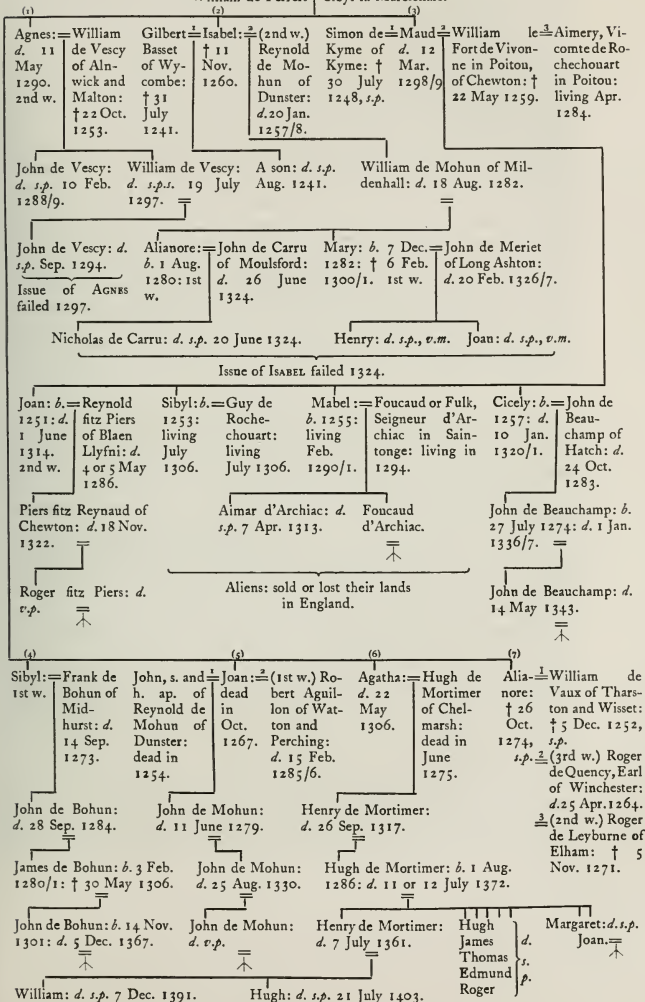 (1)
Agnes:
d. 11
May
1290.
2nd w.
=William
de Vescy
of Aln-
wick and
Malton:
†22 Oct.
1253.
(2)
Gilbert
Basset
of Wy-
combe:
† 31
July
1241.
1
=
Isabel:
† 11
Nov.
1260.
2
=
(2nd w.)
Reynold
de Mo-
hun of
Dunster:
d. 20 Jan.
1257/8.
(3)
Simon de
Kyme of
Kyme: †
30 July
1248, s.p.
1
=
Maud
d. 12
Mar.
1298/9
2
=
William le
Fort de Vivon-
ne in Poitou,
of Chewton: †
22 May 1259.
3
=
Aimery, Vi-
comte de Ro-
chechouart
in Poitou:
living Apr.
1284.
John de Vescy:
d. s.p. 10 Feb.
1288/9.
William de Vescy:
d. s.p.s. 19 July
1297. =
A son: d. s.p.
Aug. 1241.
William de Mohun of Mil-
denhall: d. 18 Aug. 1282.
=
John de Vescy: d.
s.p. Sep. 1294.
Issue of AGNES
failed 1297.
Alianore:
b. 1 Aug.
1280: 1st
w.
=John de Carru
of Moulsford:
d. 26 June
1324.
Mary: b. 7 Dec.
1282: † 6 Feb.
1300/1. 1st w.
=John de Meriet
of Long Ashton:
d. 20 Feb. 1326/7.
Nicholas de Carru: d. s.p. 20 June 1324.
Henry: d. s.p., v.m.
Joan: d. s.p., v.m.
Issue of ISABEL failed 1324.
Joan: b.
1251: d.
1 June
1314.
2nd w.
=Reynold
fitz Piers
of Blaen
Llyfni: d.
4 or 5 May
1286.
Sibyl: b.
1253:
living
July
1306.
=Guy de
Roche-
chouart:
living
July 1306.
Mabel:
b. 1255:
living
Feb.
1290/1.
=Foucaud or Fulk,
Seigneur d'Ar-
chiac in Sain-
tonge: living in
1294.
Cicely: b.
1257: d.
10 Jan.
1320/1.
=John de
Beau-
champ of
Hatch: d.
24 Oct.
1283.
Piers fitz Reynaud of
Chewton: d. 18 Nov.
1322. =
Aimar d'Archiac: d.
s.p. 7 Apr. 1313.
Foucaud
d'Archiac.
=
John de Beauchamp: b.
27 July 1274: d. 1 Jan.
1336/7. =
Roger fitz Piers: d.
v.p. =
Aliens: sold or lost their lands
in England.
John de Beauchamp: d.
14 May 1343.
=
(4)
Sibyl:
1st w.
=Frank de
Bohun of
Mid-
hurst: d.
14 Sep.
1273.
(5)
John, s. and
h. ap. of
Reynold de
Mohun of
Dunster:
dead in
1254.
1
=
Joan:
dead
in
Oct.
1267.
2
=
(1st w.) Ro-
bert Aguil-
lon of Wat-
ton and
Perching:
d. 15 Feb.
1285/6.
(6)
Agatha:
d. 22
May
1306.
=Hugh de
Mortimer
of Chel-
marsh:
dead in
June
1275.
(7)
Alia-
nore:
† 26
Oct.
1274,
s.p.
1
=
William de
Vaux of Thars-
ton and Wisset:
† 5 Dec. 1252,
s.p.
2
=
(3rd w.) Roger
de Quency, Earl
of Winchester:
d. 25 Apr. 1264.
3
=
(2nd w.) Roger
de Leyburne of
Elham: † 5
Nov. 1271.
John de Bohun:
d. 28 Sep. 1284.
=
John de Mohun:
d. 11 June 1279.
=
Henry de Mortimer:
d. 26 Sep. 1317.
=
James de Bohun: b. 3 Feb.
1280/1: † 30 May 1306.
=
John de Mohun:
d. 25 Aug. 1330.
=
Hugh de Mortimer: b. 1 Aug.
1286: d. 11 or 12 July 1372.
=
John de Bohun: b. 14 Nov.
1301: d. 5 Dec. 1367.
=
John de Mohun:
d. v.p.
=
Henry de Mortimer:
d. 7 July 1361.
=
Hugh
James
Thomas
Edmund
Roger
d.
s.
p.
Margaret: d. s.p.
Joan.=
William: d. s.p. 7 Dec. 1391.
Hugh: d. s.p. 21 July 1403.